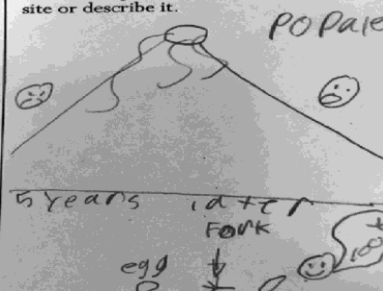 site or describe it.
POPale
5 years later
FORK
egg